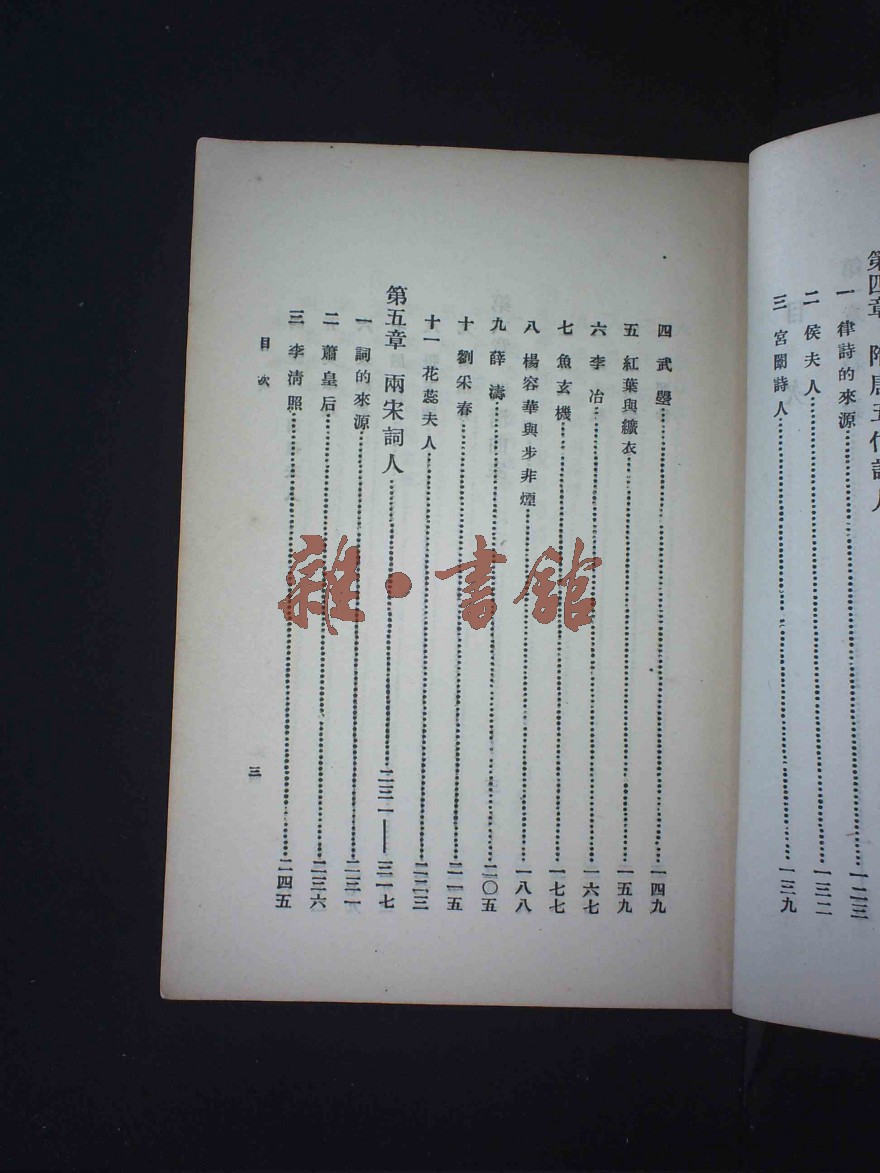 第四章 隋唐五代詩人
一 律詩的來源⋯⋯一二三
二 侯夫人⋯⋯一三二
三 宮闈詩人⋯⋯一三九
四 武曌⋯⋯一四九
五 紅葉與纖衣⋯⋯一五九
六 李冶⋯⋯一六七
七 魚玄機⋯⋯一七七
八 楊容華與步非煙⋯⋯一八八
九 薛濤⋯⋯二〇五
十 劉采春⋯⋯二一五
十一 花蕊夫人⋯⋯二二三
第五章 兩宋詞人⋯⋯二三一——三一七
一 詞的來源⋯⋯二三一
二 蕭皇后⋯⋯二三六
三 李清照⋯⋯二四五
目次
三
雜·書館